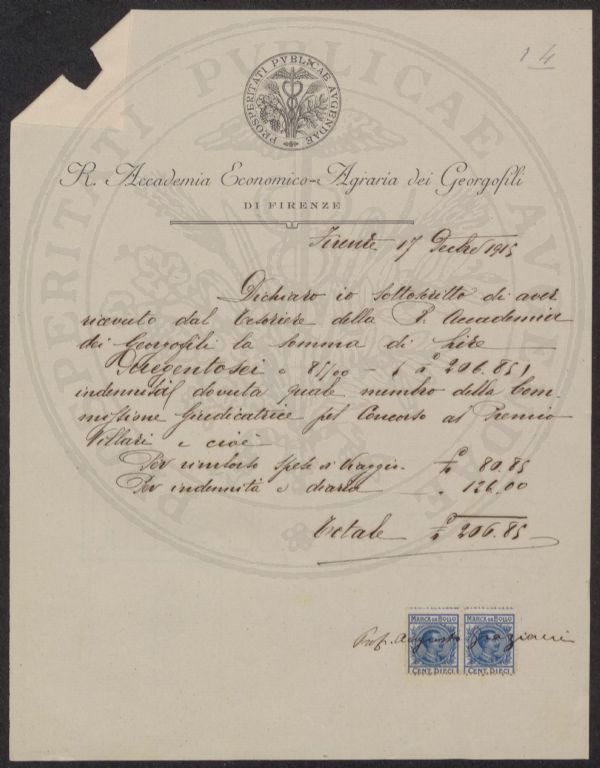 1 4
PROSPERITATI PVBLICAE AVGENDAE
R. Accademia Economico-Agraria dei Georgofili
DI FIRENZE
Firenze 17 Decbre 1915
Dichiaro io sottoscritto di aver
ricevuto dal Tesoriere della R. Accademia
dei Georgofili la somma di Lire
Duegentosei e 85/00 - £ 206.85,
indennità dovuta quale membro della Com-
missione Giudicatrice pel Concorso al Premio
Villari e cioè
Per rimborso spese di viaggio £ 80.85
Per indennità e diaria " 126.00
Totale £ 206.85
Prof. Augusto Graziani
MARCA DA BOLLO MARCA DA BOLLO
CENT. DIECI CENT. DIECI
PROSPERITATI PVBLICAE AVGENDAE